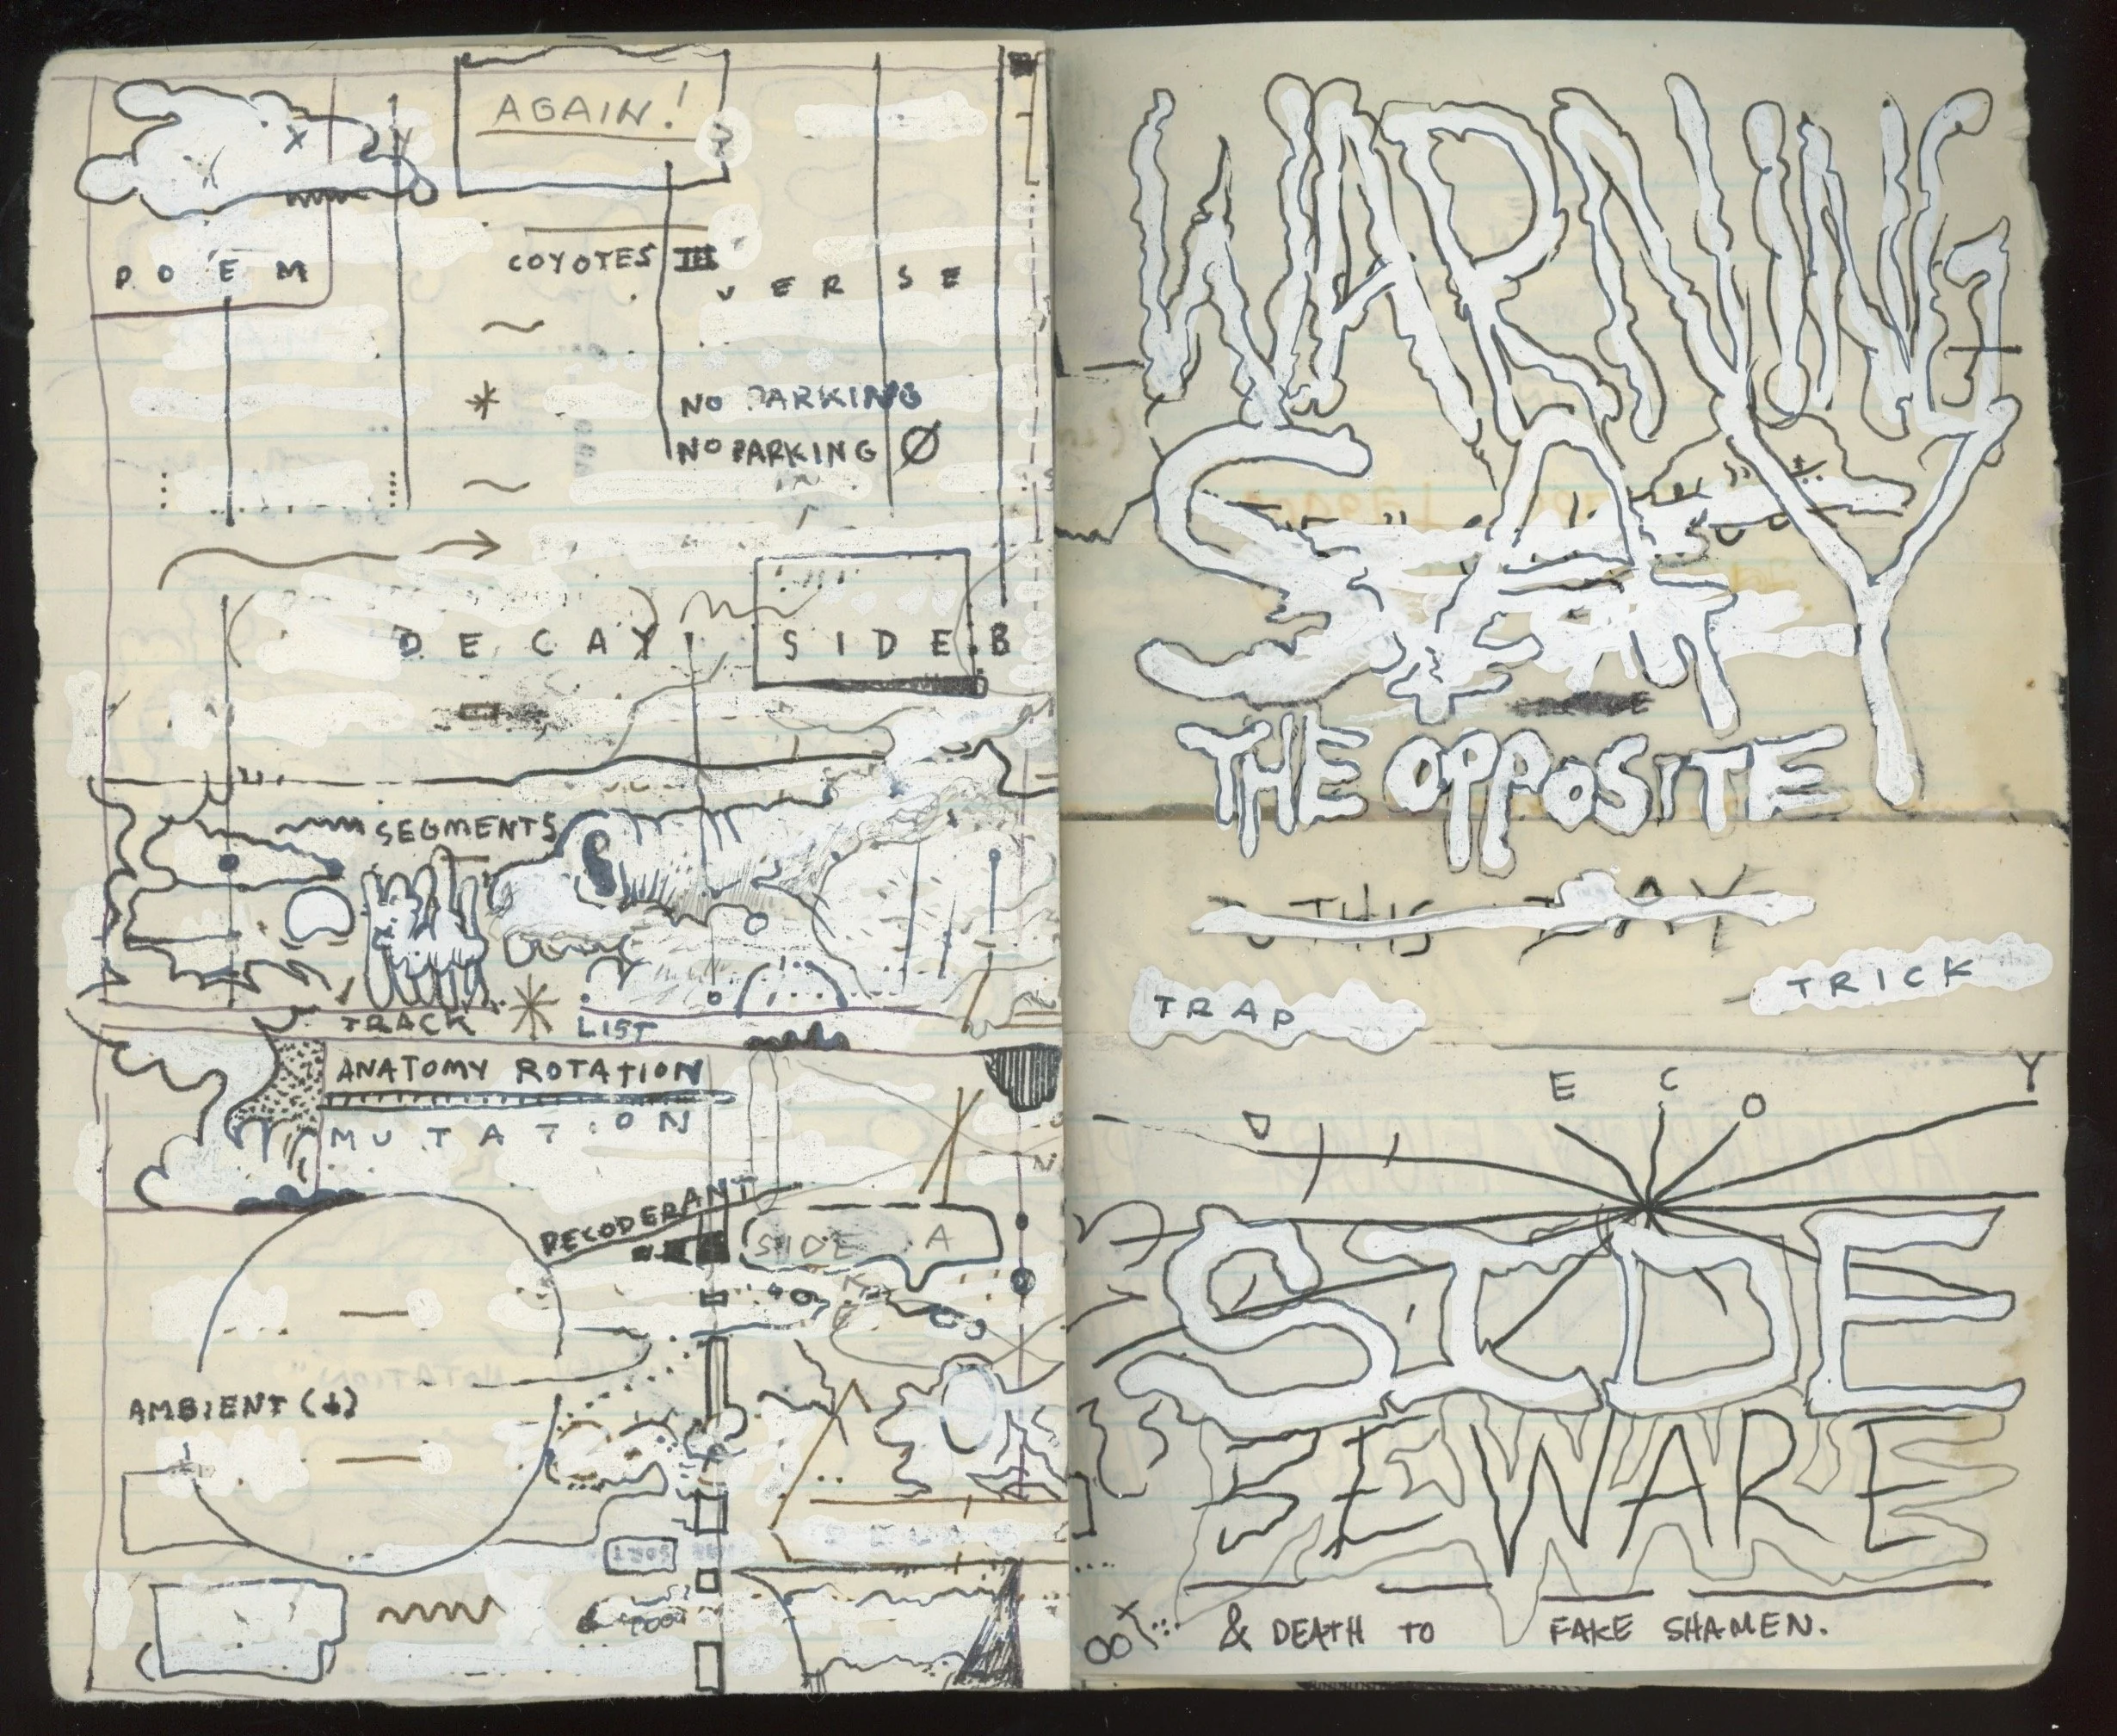 AGAIN!
POEM
COYOTES III
VERSE
NO PARKING
NO PARKING Ø
DECAY
SIDE B
SEGMENTS
TRACK * LIST
ANATOMY ROTATION
MUTATION
DECODERANT
SIDE A
AMBIENT (↓)
SORT
WARNING
SAY
THE OPPOSITE
THIS DAY
TRAP
TRICK
DECOY
SIDE
BEWARE
& DEATH TO FAKE SHAMEN.